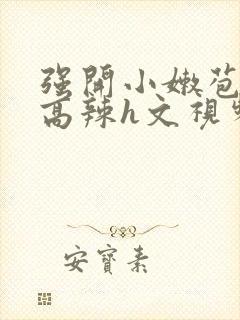 强開小嫩苞
高辣h文視
安寶素